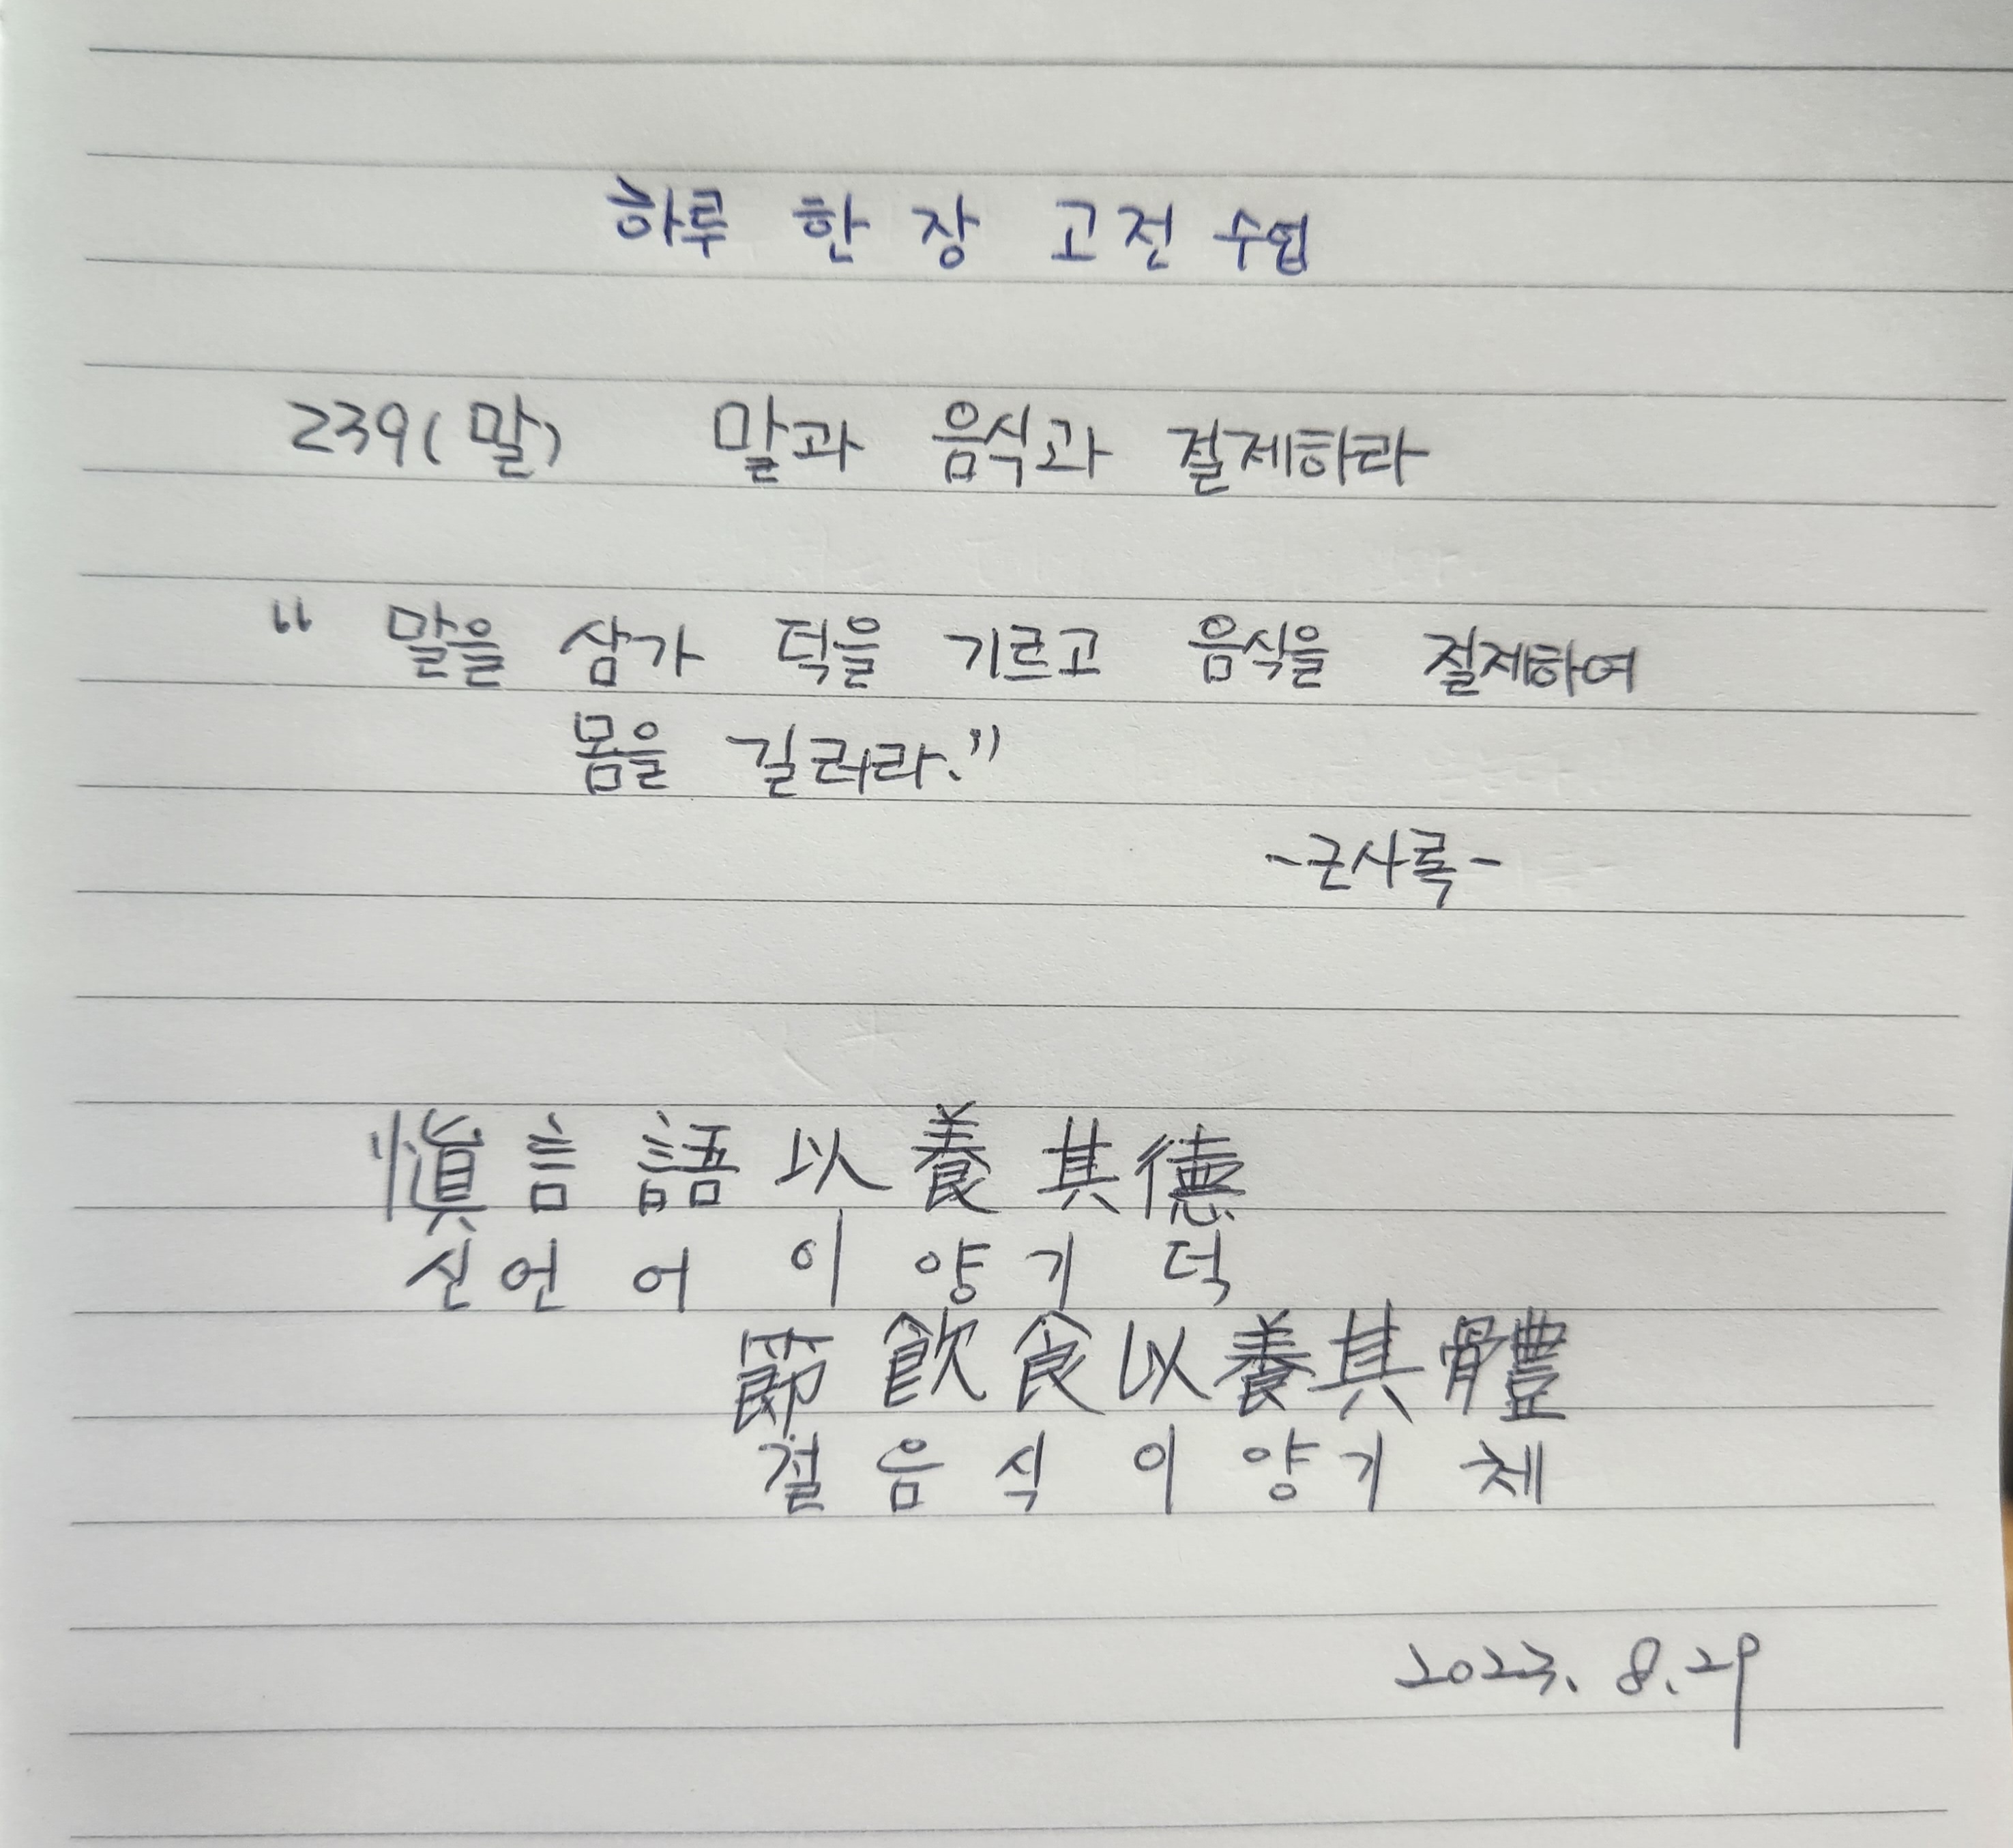 하루 한 장 고전 수업
239(말) 말과 음식과 절제하라
“ 말을 삼가 덕을 기르고 음식을 절제하여
몸을 길러라.”
-근사록-
愼言語以養其德
신언어이양기덕
節飮食以養其體
절음식이양기체
2023. 8. 29